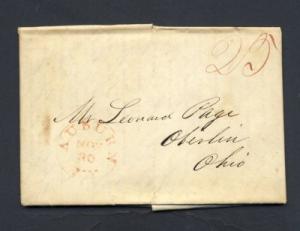 25
Mr Leonard Page
Oberlin
Ohio
AUBURN
NOV
20